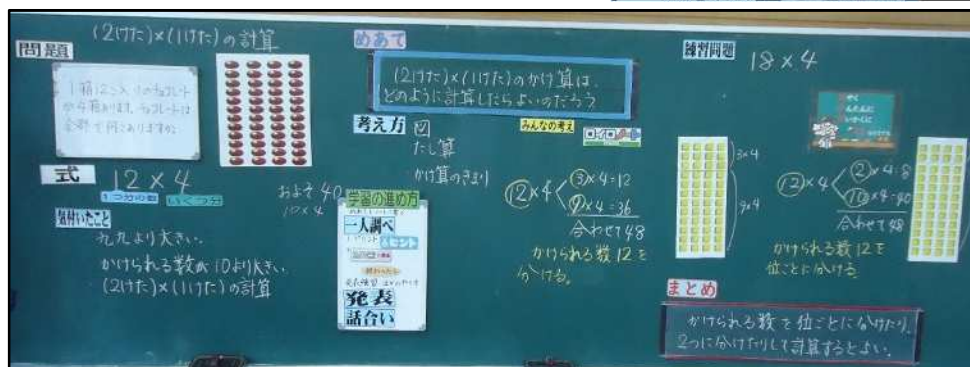 (2けた)×(1けた)の計算
問題
1箱12こ入りのチョコレート
が4箱あります。チョコレートは
全部で何こありますか。
式
12×4
1つ分の数
いくつ分
およそ40
10×4
気付いたこと
九九より大きい。
かけられる数が10より大きい
(2けた)×(1けた)の計算
めあて
(2けた)×(1けた)のかけ算は、
どのように計算したらよいのだろう?
考え方
図
たし算
かけ算のきまり
学習の進め方
一人調べ
ヒント
発表
話合い
みんなの考え
ロイロノート
12×4
3×4=12
9×4=36
合わせて48
かけられる数12を
分ける。
練習問題
18×4
3×4
9×4
12×4
2×4=8
10×4=40
合わせて48
かけられる数12を
位ごとに分ける
まとめ
かけられる数を位ごとに分けたり、
2つに分けたりして計算するとよい。